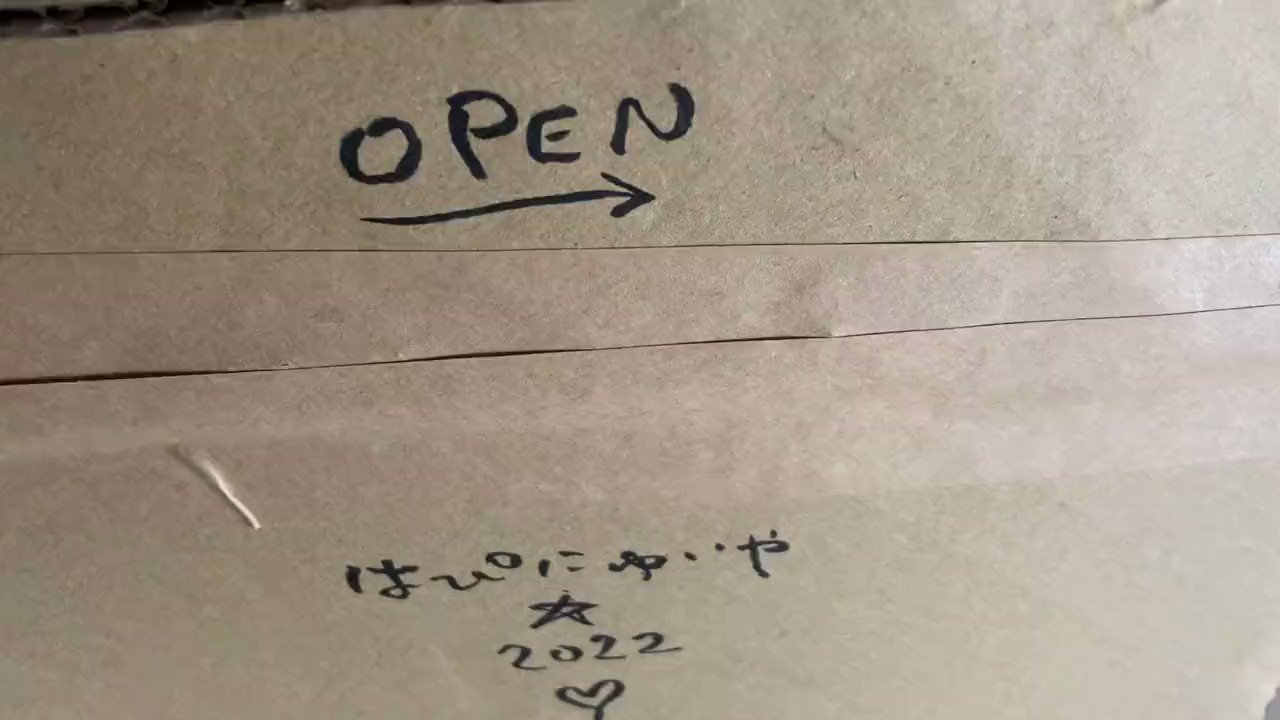 OPEN
→
はぴにゅ‥や
☆
2022
♡